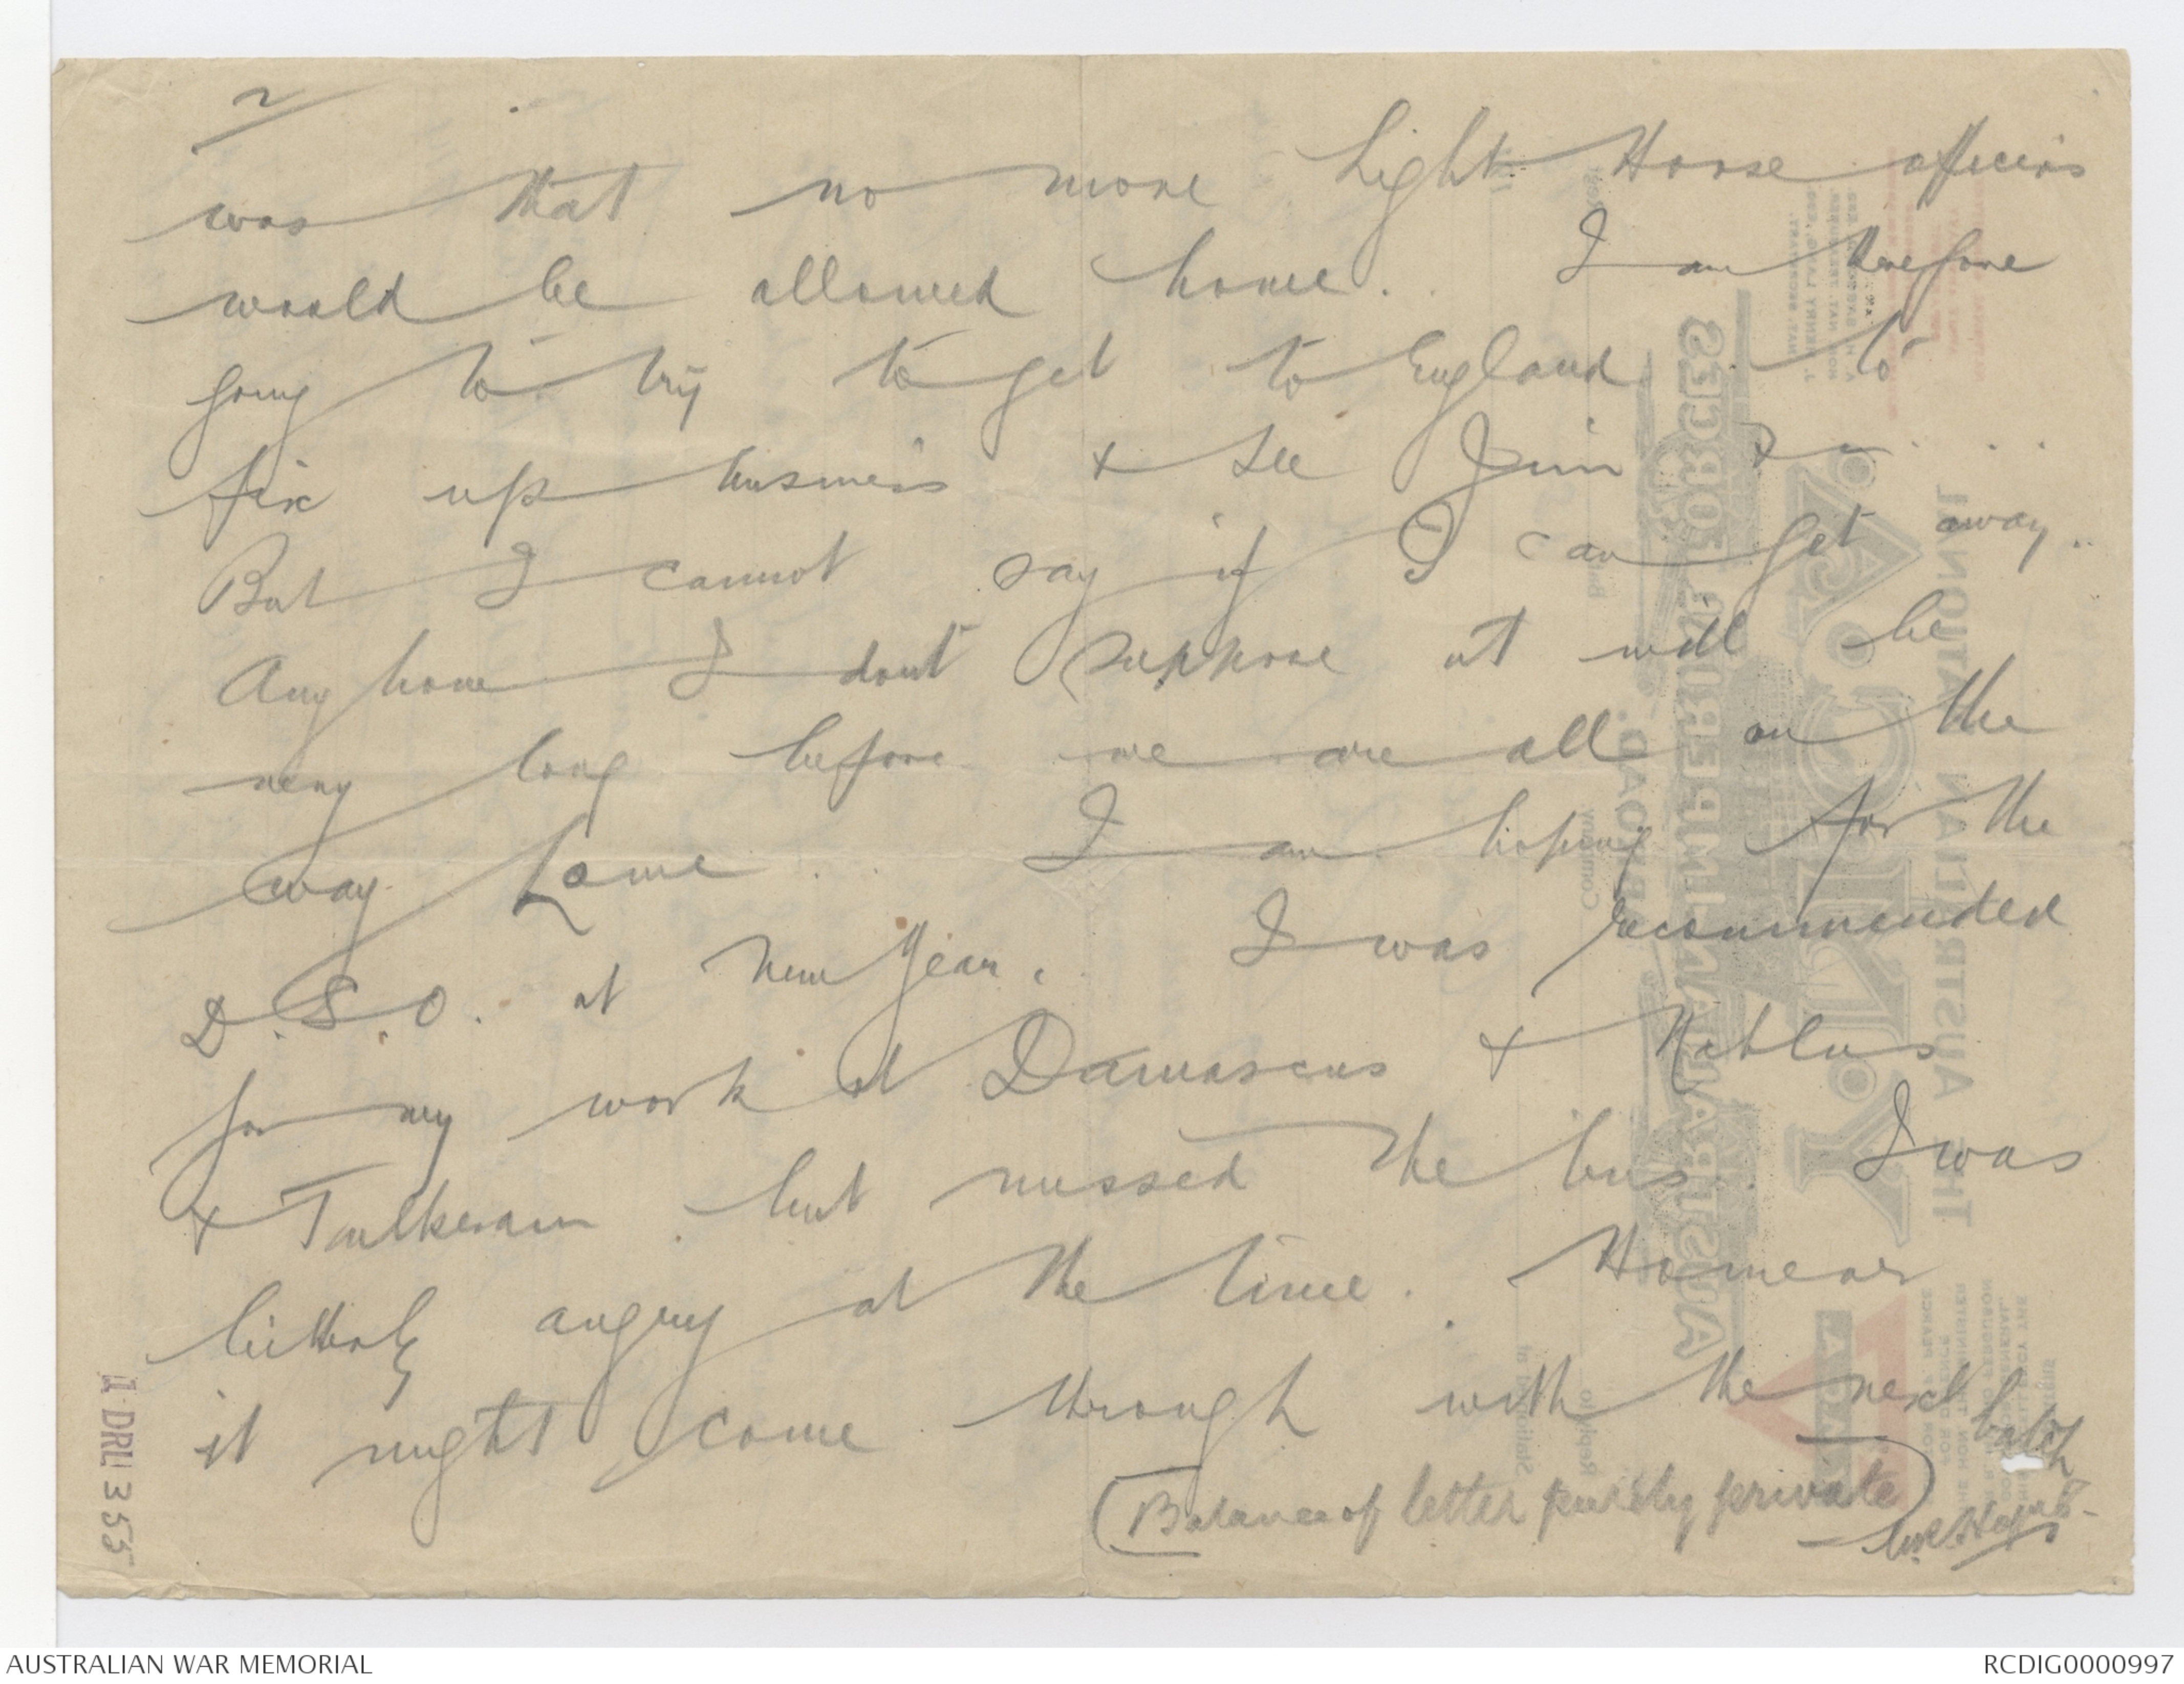 2
was that no more Light Horse officers
would be allowed home. I am therefore
going to try to get to England to
fix up business & see Jim &
But I cannot say if I can get away.
Any how I dont suppose it will be
very long before we are all on the
way home. I am hoping for the
D.S.O. at New Year. I was recommended
for my work at Damascus & Nablus
& Tulkeram but missed the bus. I was
bitterly angry at the time. However
it might come through with the next batch
(Balance of letter purely private)
1 DRL 353
AUSTRALIAN WAR MEMORIAL
RCDIG0000997